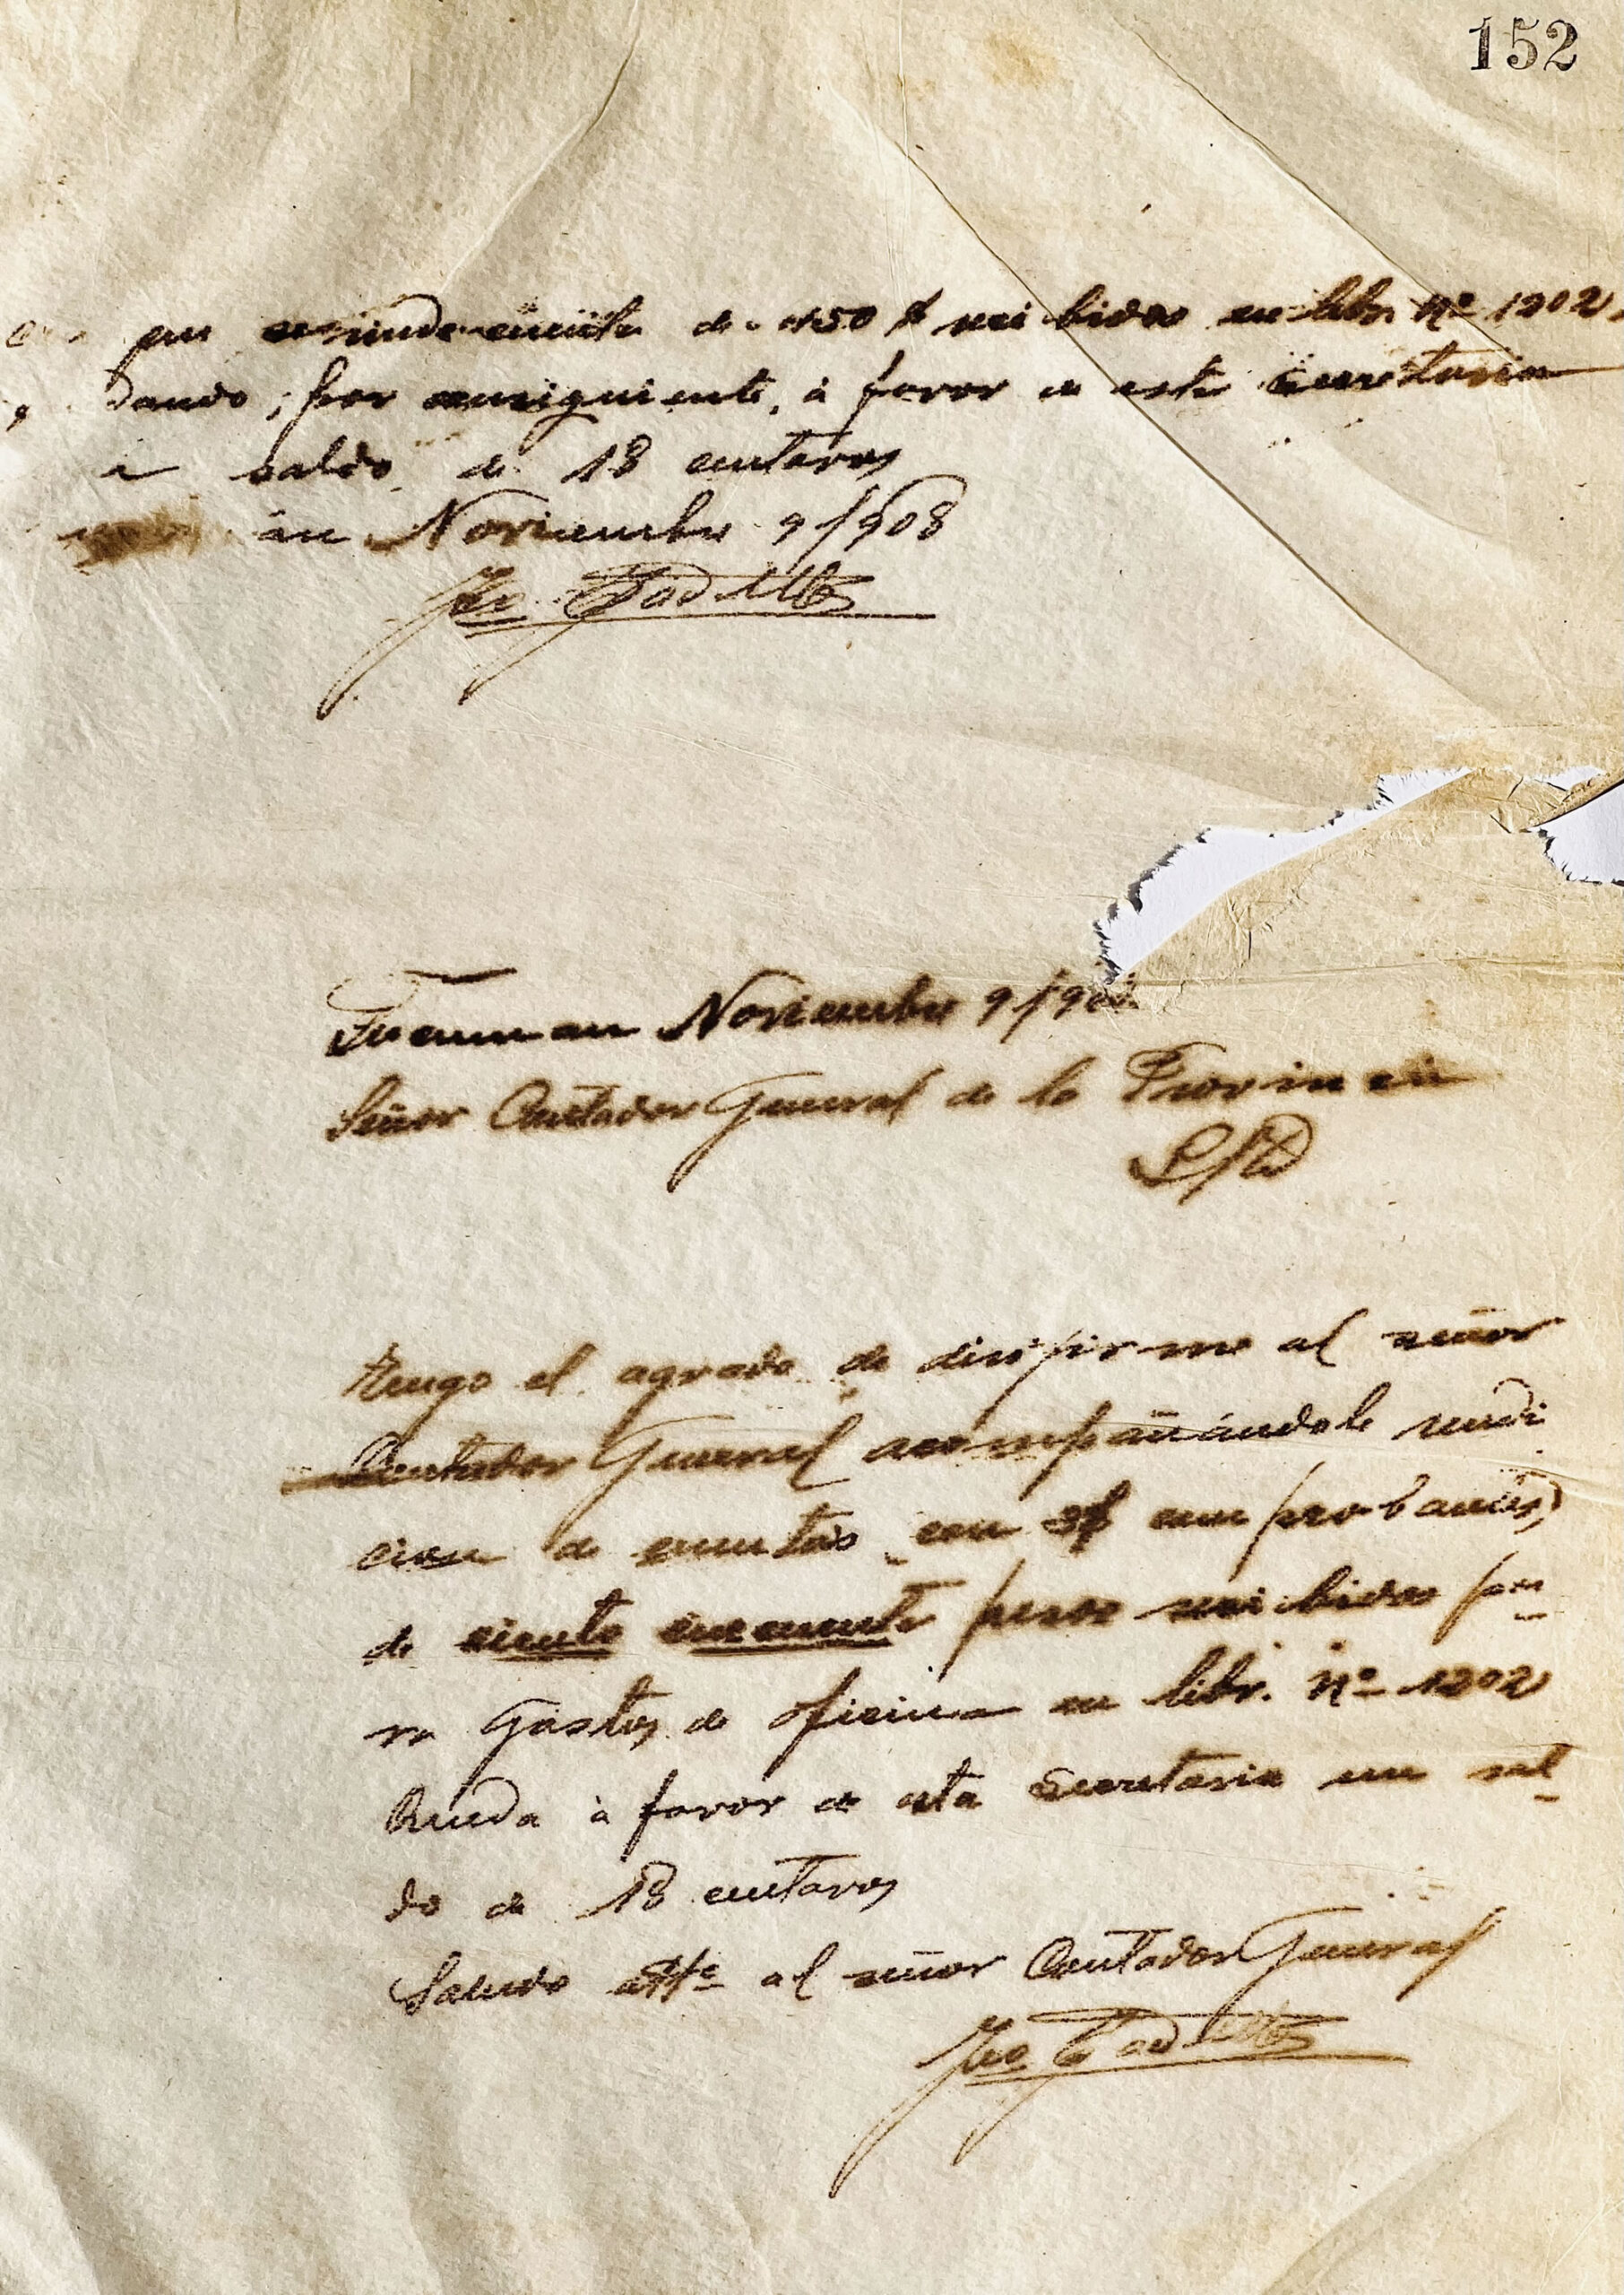 152
que se rinde cuenta de 150 $ recibidos en libr. Nº 1202,
dando, por consiguiente, á favor de esta Secretaria
saldo de 18 centavos
án Noviembre 9/908
Tucuman Noviembre 9/90
Señor Contador General de la Provincia
S/D
Tengo el agrado de dirijirme al señor
Contador General acompañándole rendi
cion de cuentas con comprobantes,
de ciento cincuenta pesos recibidos pa-
ra Gastos de oficina en libr. Nº 1202
Queda á favor de esta Secretaria un sal-
do de 18 centavos
Saludo atte al señor Contador General